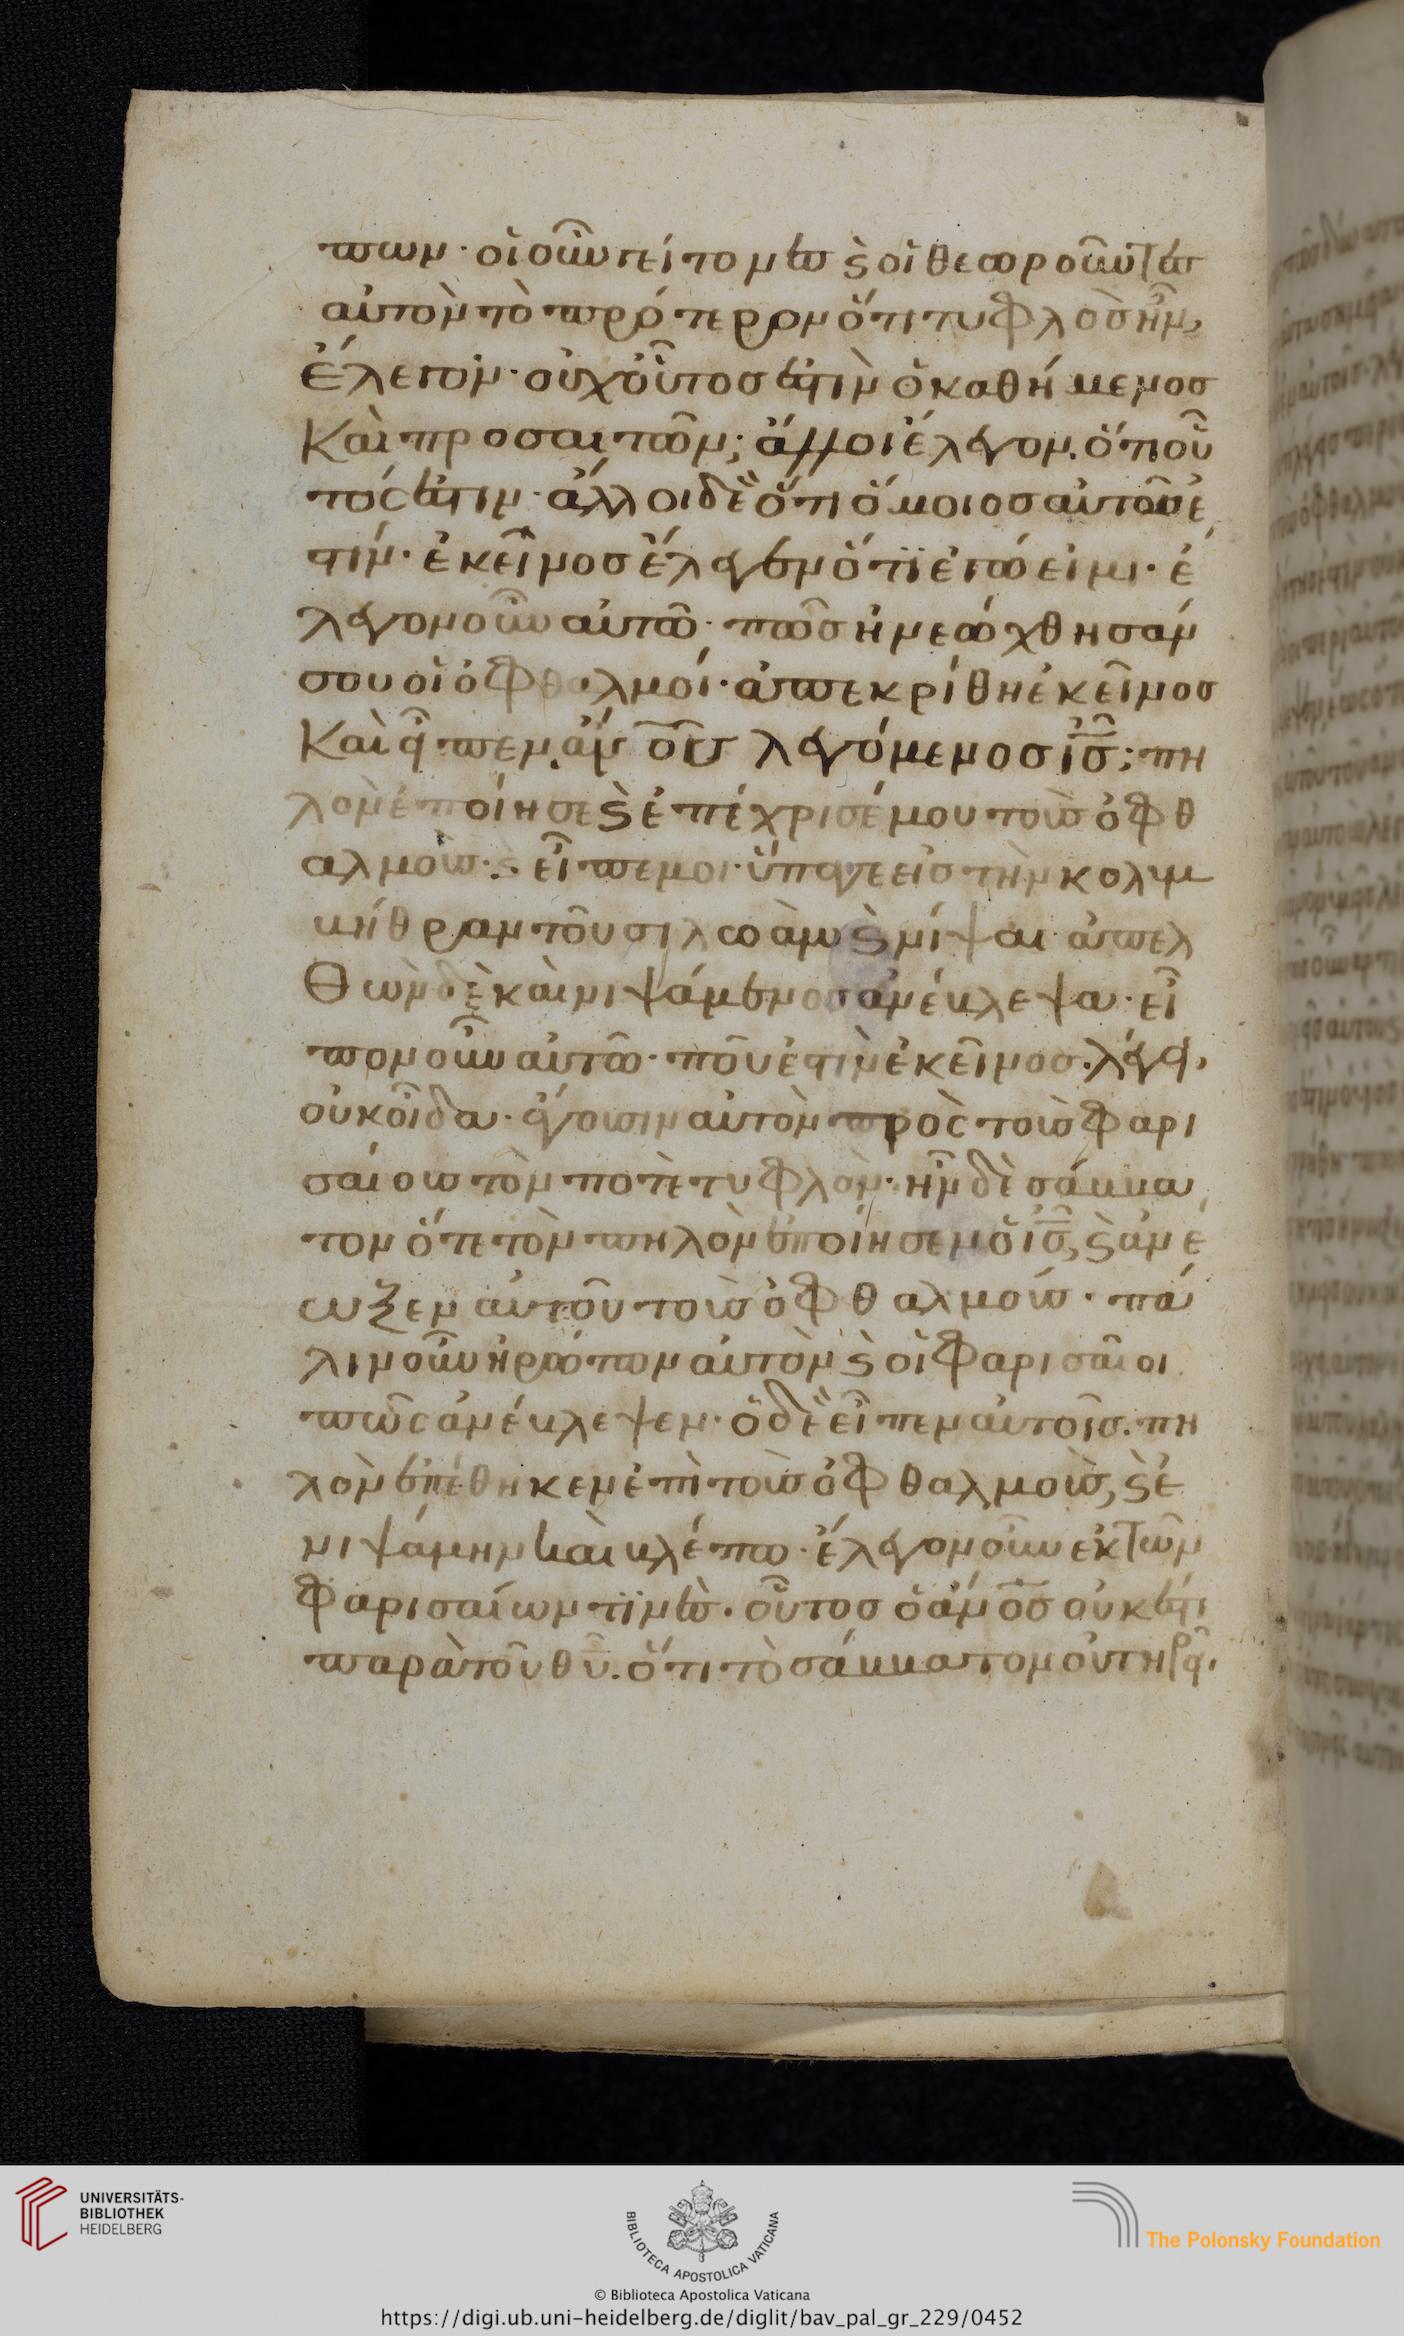 πων· οἱ οὖν γείτονες ϗ οἱ θεωροῦντες
αὐτὸν τὸ πρότερον ὅτι τυφλὸς ἦν,
ἔλεγον· οὐχ οὗτος ἐστὶν ὁ καθήμενος
καὶ προσαιτῶν; ἄλλοι ἔλεγον. ὅτι οὗ
τός ἐστιν· ἄλλοι δὲ ὅτι ὅμοιος αὐτοῦ ἐ
στίν· ἐκεῖνος ἔλεγεν ὅτι ἐγώ εἰμι· ἔ
λεγον οὖν αὐτῶ· πῶς ἠνεώχθησάν
σου οἱ ὀφθαλμοί· ἀπεκρίθη ἐκεῖνος
καὶ εἶπεν. ἄν̅ο̅ς λεγόμενος ι̅ς̅; πη
λὸν ἐποίησε ϗ ἐπέχρισέ μου τοὺς ὀφθ
αλμοὺς· ϗ εἶπε μοι· ὕπαγε εἰς τὴν κολυμ
βήθραν τοῦ σιλωὰμ ϗ νίψαι· ἀπελ
θὼν δὲ καὶ νιψάμενος ἀνέβλεψα· εἶ
πον οὖν αὐτῶ· ποῦ ἐστὶν ἐκεῖνος. λέγει,
οὐκ οἶδα· ἄγουσιν αὐτὸν πρὸς τοὺς φαρι
σαίους τὸν ποτὲ τυφλὸν· ἦν δὲ σάββα
τον ὅτε τὸν πηλὸν ἐποίησεν ὁ ι̅ς̅, ϗ ἀνέ
ωξεν αὐτοῦ τοὺς ὀφθαλμούς· πά
λιν οὖν ἠρώτων αὐτὸν ϗ οἱ φαρισαῖοι
πῶς ἀνέβλεψεν· ὁ δὲ εἶπεν αὐτοῖς. πη
λὸν ἐπέθηκεν ἐπὶ τοὺς ὀφθαλμοὺς, ϗ ἐ
νιψάμην καὶ βλέπω· ἔλεγον οὖν ἐκ τῶν
φαρισαίων τινὲς· οὗτος ὁ ἄν̅ο̅ς οὐκ ἔστι
παρὰ τοῦ θ̅υ̅. ὅτι τὸ σάββατον οὐ τηρεῖ,
UNIVERSITÄTS-
BIBLIOTHEK
HEIDELBERG
BIBLIOTECA APOSTOLICA VATICANA
The Polonsky Foundation
© Biblioteca Apostolica Vaticana
https://digi.ub.uni-heidelberg.de/diglit/bav_pal_gr_229/0452